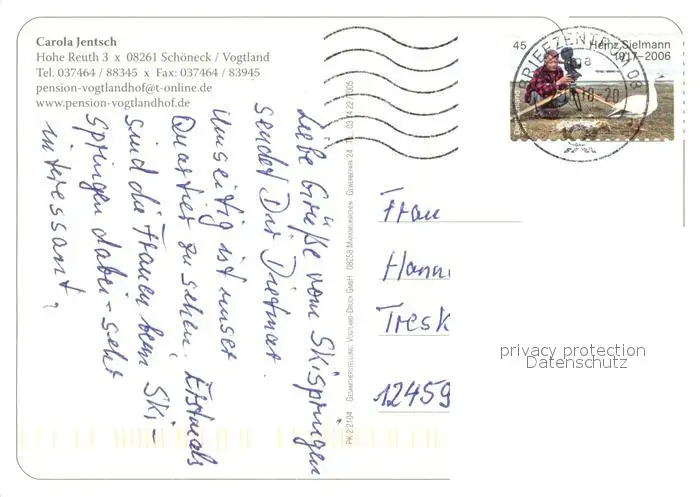 Carola Jentsch
Hohe Reuth 3 x 08261 Schöneck / Vogtland
Tel. 037464 / 88345 x Fax: 037464 / 83945
pension-vogtlandhof@t-online.de
www.pension-vogtlandhof.de
Liebe Grüße vom Skispringen
sendet Dir Dietmar.
Umseitig ist unser
Quartier zu sehen. Erstmals
sind die Frauen beim Ski-
springen dabei - sehr
interessant.
PK 2 2104 Gesamtherstellung: Vogtland-Druck GmbH 08258 Markneukirchen Gewerbepark 24
45
Heinz Sielmann
1917-2006
BRIEFZENTRUM 08
Frau
Hann
Tresk
12459
privacy protection
Datenschutz